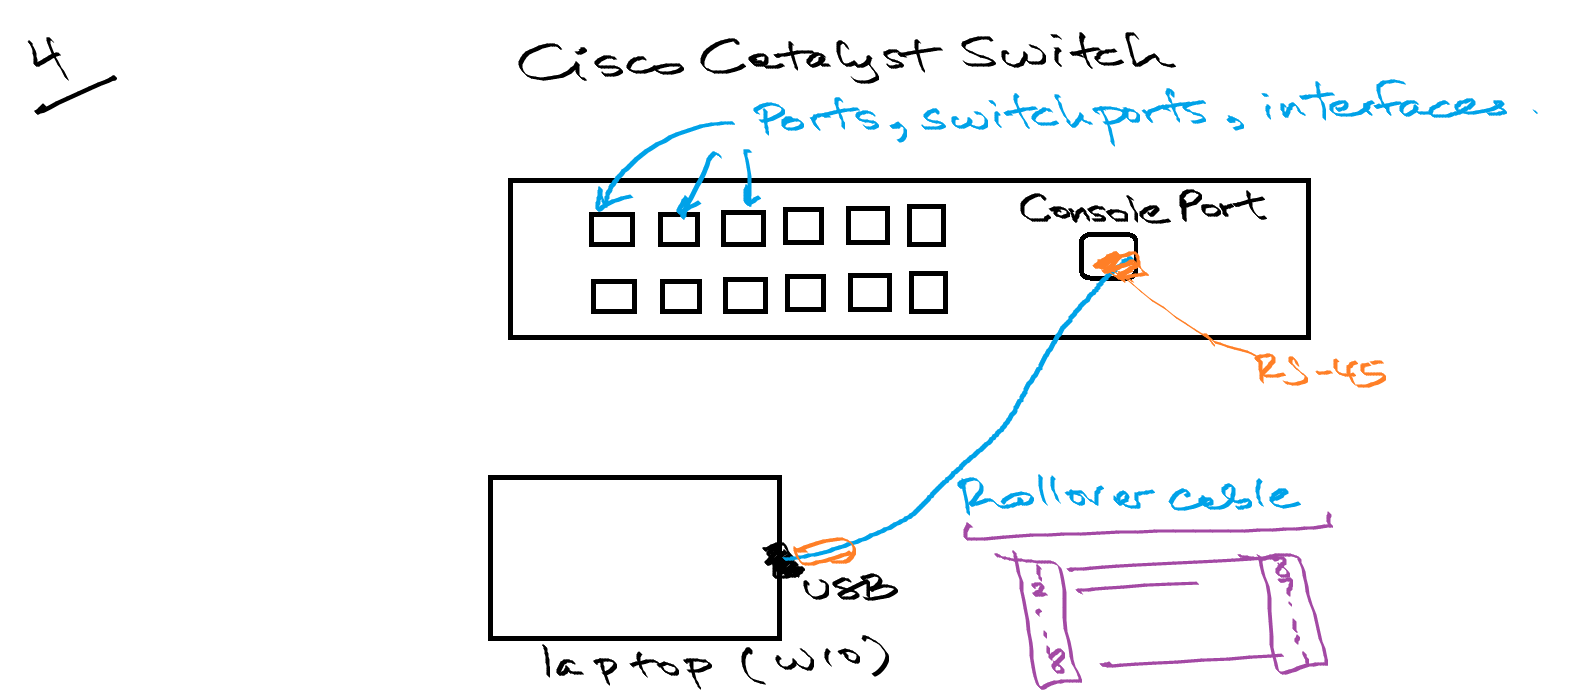 4
Cisco Catalyst Switch
Ports, switchports, interfaces.
Console Port
RJ-45
Rollover cable
USB
1
2
.
.
8
8
7
.
.
1
laptop (W10)